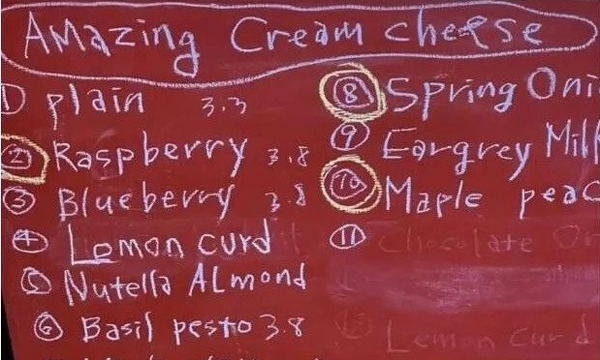 Amazing Cream cheese
① plain 3.3
② Raspberry 3.8
③ Blueberry 3.8
④ Lemon curd
⑤ Nutella Almond
⑥ Basil pesto 3.8
⑧ Spring Oni
⑨ Eargrey Milk
⑩ Maple peac
⑪ Chocolate Or
Lemon curd